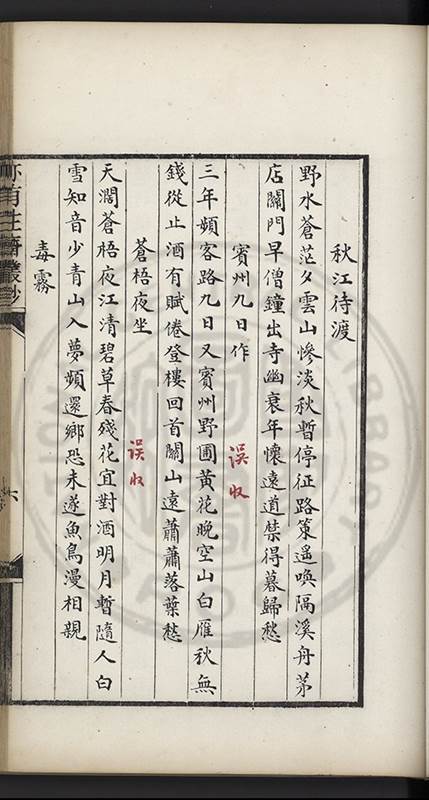 秋江待渡
野水蒼茫夕雲山慘淡秋暫停征路策遥喚隔溪舟茅
店關門早僧鐘出寺幽衰年懷遠道禁得暮歸愁
賓州九日作
误收
三年頻客路九日又賓州野圃黃花晚空山白雁秋無
錢從止酒有賦倦登樓回首關山遠蕭蕭落葉愁
蒼梧夜坐
误收
天濶蒼梧夜江清碧草春殘花宜對酒明月暫隨人白
雪知音少青山入夢頻還鄉恐未遂魚鳥漫相親
毒霧
亦有生齋叢鈔